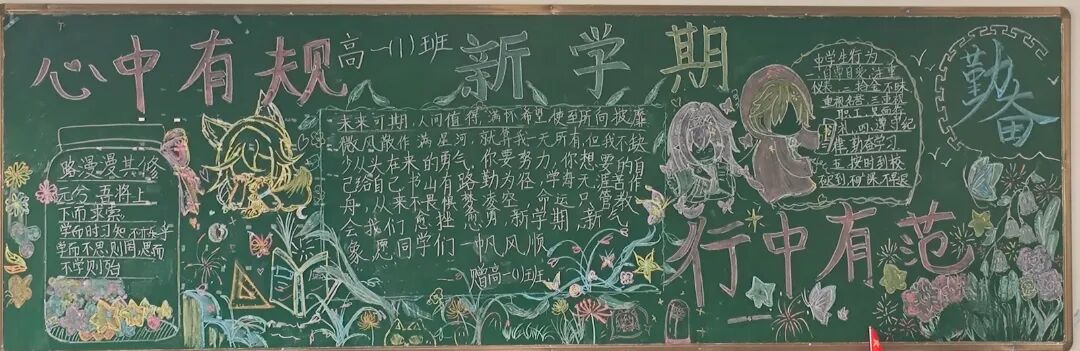 心中有规
高一(1)班
新学期
路漫漫其修
元兮 吾将上
下而求索
学而时习知 不亦乐乎
学而不思则罔 思而
不学则殆
未来可期,人间值得,满怀希望,使至所向披靡
微风散作满星河,就算我一无所有,但我不缺
少从头在来的勇气,你要努力,你想要的自
己给自己,书山有路勤为径,学海无涯苦作
舟,从来不畏惧,梦凌空,命运只管教
会我们愈挫愈勇,新学期,新气
象,愿同学们一帆风顺
赠高一(1)班
中学生行为
仪表,二
重视名誉 三重视
礼,四遵守纪
律,勤奋学习
五 按时到校
不迟到 不早退
行中有范
勤奋